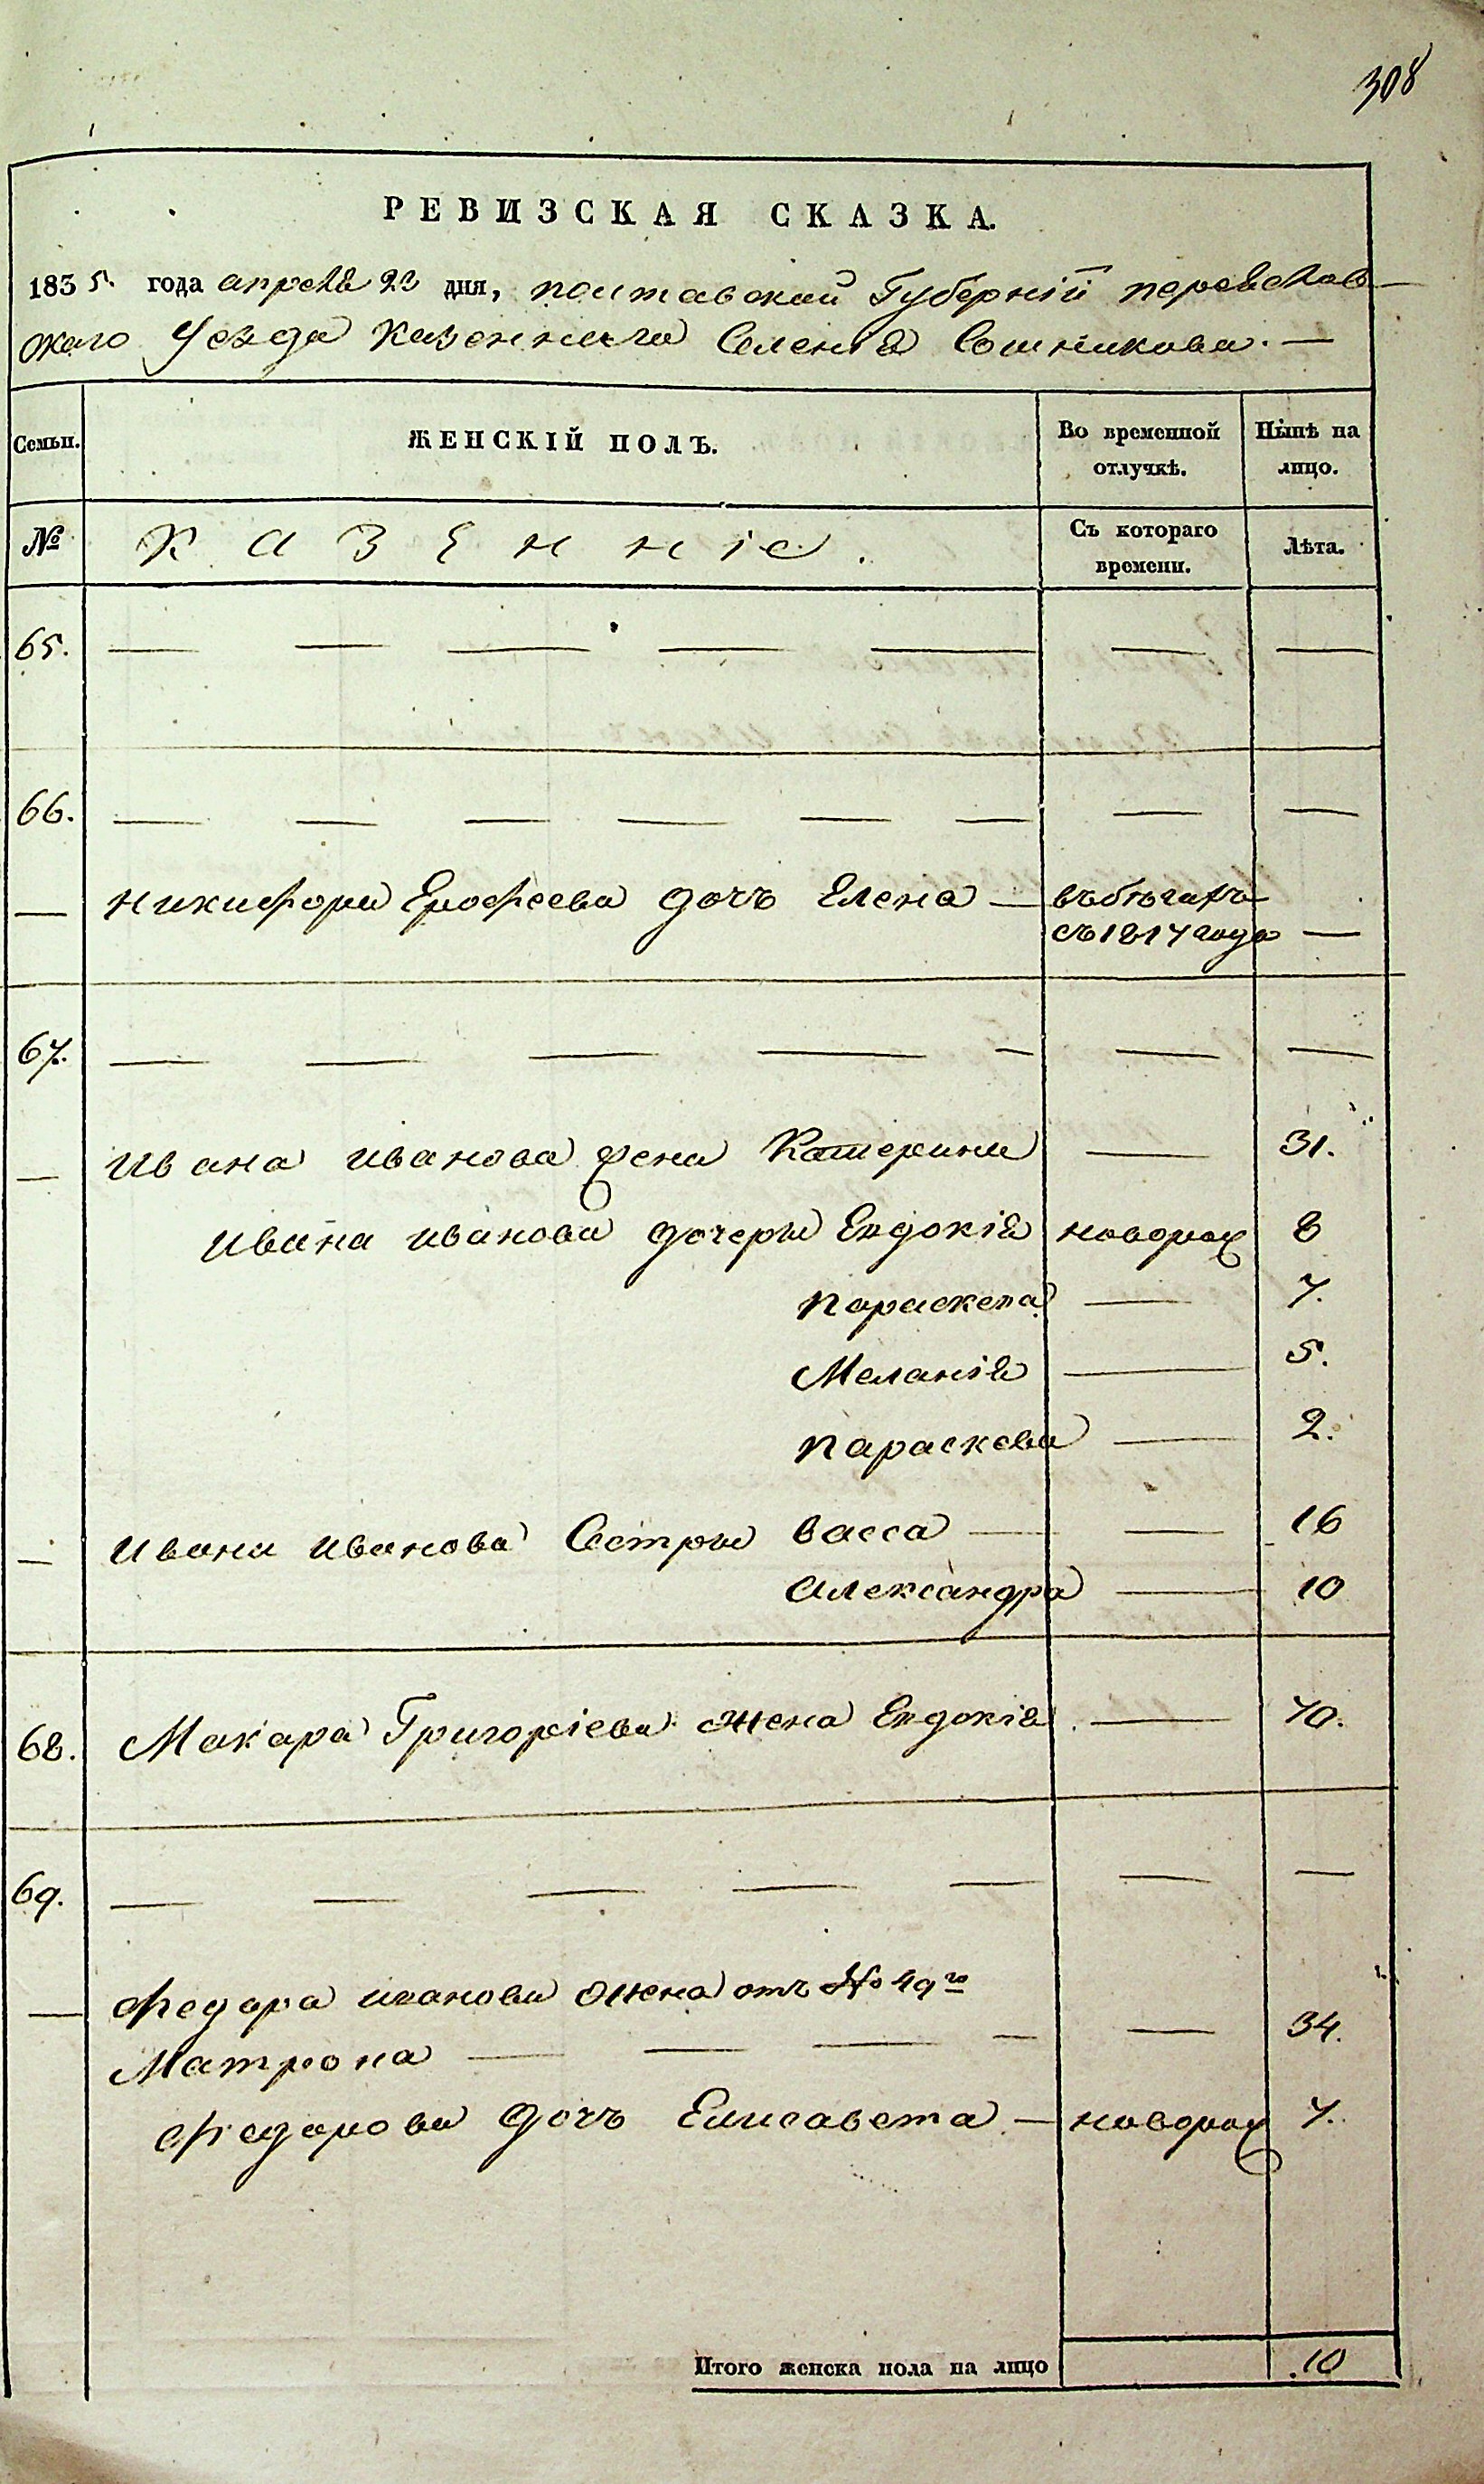 308
РЕВИЗСКАЯ СКАЗКА.
1835. года апреля 22 дня, полтавской Губерніи переяслав-
скаго Уезда казеннаго Селенія Сошникова. —
Семьи. ЖЕНСКІЙ ПОЛЪ. Во временной отлучкѣ. Нынѣ на лицо.
№ Казенніе. Съ котораго времени. Лѣта.
65. — — — — — — —
66. — — — — — — — —
— никифора Ерофеева дочъ Елена — въбѣгахъ
съ 1817 года —
67. — — — — — — —
— Ивана иванова жена Катерина — 31.
Ивана иванова дочери Евдокія новорож 8
параскева — 7.
Меланія — 5.
параскева — 2.
— Ивана иванова Сестри васса — — 16
Александра — 10
68. Макара Григоріева жена Евдокія — 70.
69. — — — — — — —
— Федора иванова жена отъ №49го
Матрона — — — — — 34.
Федорова дочъ Елисавета — новорож 7.
Итого женска пола на лицо 10